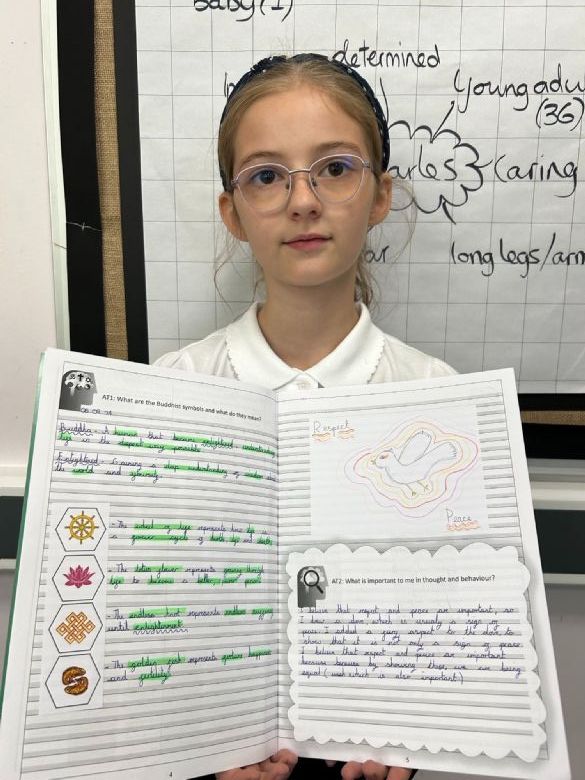 Baby (1)
determined
Young adu
(36)
arles
Caring
ar
long legs/arm
AT1: What are the Buddhist symbols and what do they mean?
Buddha - A human that became enlightened - understanding
life in the deepest way possible
Enlightened - Gaining a deep understanding of wisdom about
the world and
- The wheel of life represents how life is
a process cycle of birth, life and death
- The lotus flower represents going through
life to become a better, pure person
- The endless knot represents endless
until enlightenment
- The golden fish represents fortune, happiness
and fertility
4
Respect
Peace
AT2: What is important to me in thought and behaviour?
I believe that respect and peace are important, so
I drew a dove which is usually a sign of
peace. I added a aspect to the dove, to
show that it is not only a sign of peace.
I believe that respect and peace are important
because because by showing these, we are being
equal (which is also important)
5